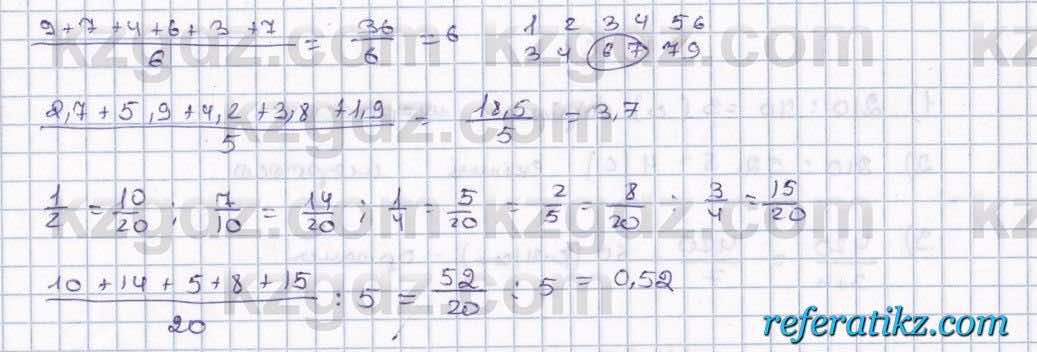 (9+7+4+6+3+7)/6 = 36/6 = 6    1 2 3 4 5 6
3 4 6 7 7 9
(2,7+5,9+4,2+3,8+1,9)/5 = 18,5/5 = 3,7
1/2 = 10/20 ; 7/10 = 14/20 ; 1/4 = 5/20 = 2/5 = 8/20 ; 3/4 = 15/20
(10+14+5+8+15)/20 : 5 = 52/20 : 5 = 0,52
kzgdz.com
referatikz.com